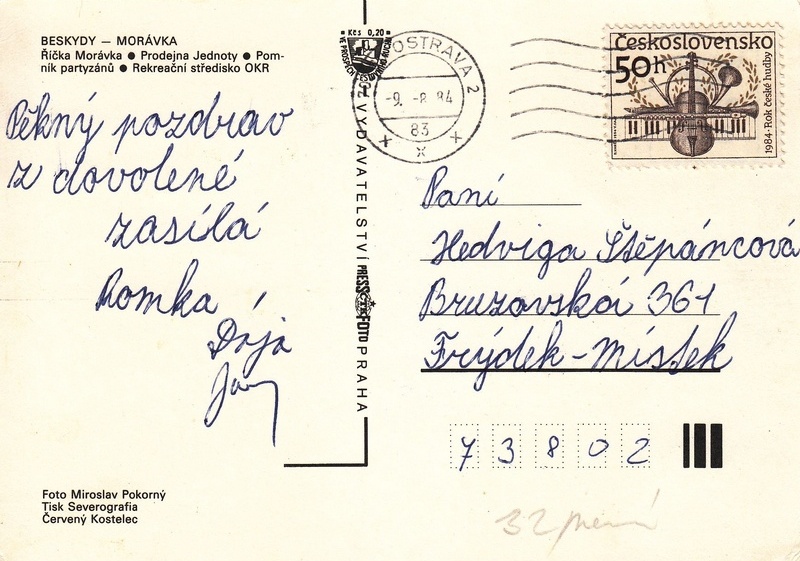 BESKYDY — MORÁVKA
Říčka Morávka ● Prodejna Jednoty ● Pom-
ník partyzánů ● Rekreační středisko OKR
Pěkný pozdrav
z dovolené
zasílá
Romka
Dája
Jan
Foto Miroslav Pokorný
Tisk Severografia
Červený Kostelec
Kčs 0,20
VYDAVATELSTVÍ PRESSFOTO PRAHA
OSTRAVA 2
-9. -8. 84
83
Československo
50h
1984-Rok české hudby
Paní
Hedviga Štěpáncová
Bruzovská 361
Frýdek-Místek
73802